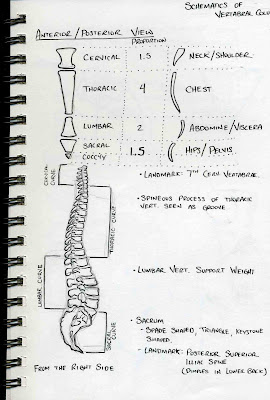 SCHEMATICS OF
VERTABRAL
ANTERIOR/POSTERIOR VIEW
PROPORTION
CERVICAL 1.5 NECK/SHOULDER
THORACIC 4 CHEST
LUMBAR 2 ABDOMINE/VISCERA
SACRAL
COCCYX 1.5 HIPS/PELVIS
CERVICAL CURVE
• LANDMARK: 7TH CERV. VERTABRAE.
• SPINEOUS PROCESS OF THORACIC
VERT. SEEN AS GROOVE
THORACIC CURVE
• LUMBAR VERT. SUPPORT WEIGHT
LUMBAR CURVE
• SACRUM
- SPADE SHAPED, TRIANGLE, KEYSTONE
SHAPED.
- LANDMARK: POSTERIOR SUPERIOR
ILLIAC SPINE
(DIMPLES IN LOWER BACK)
SACRAL CURVE
FROM THE RIGHT SIDE